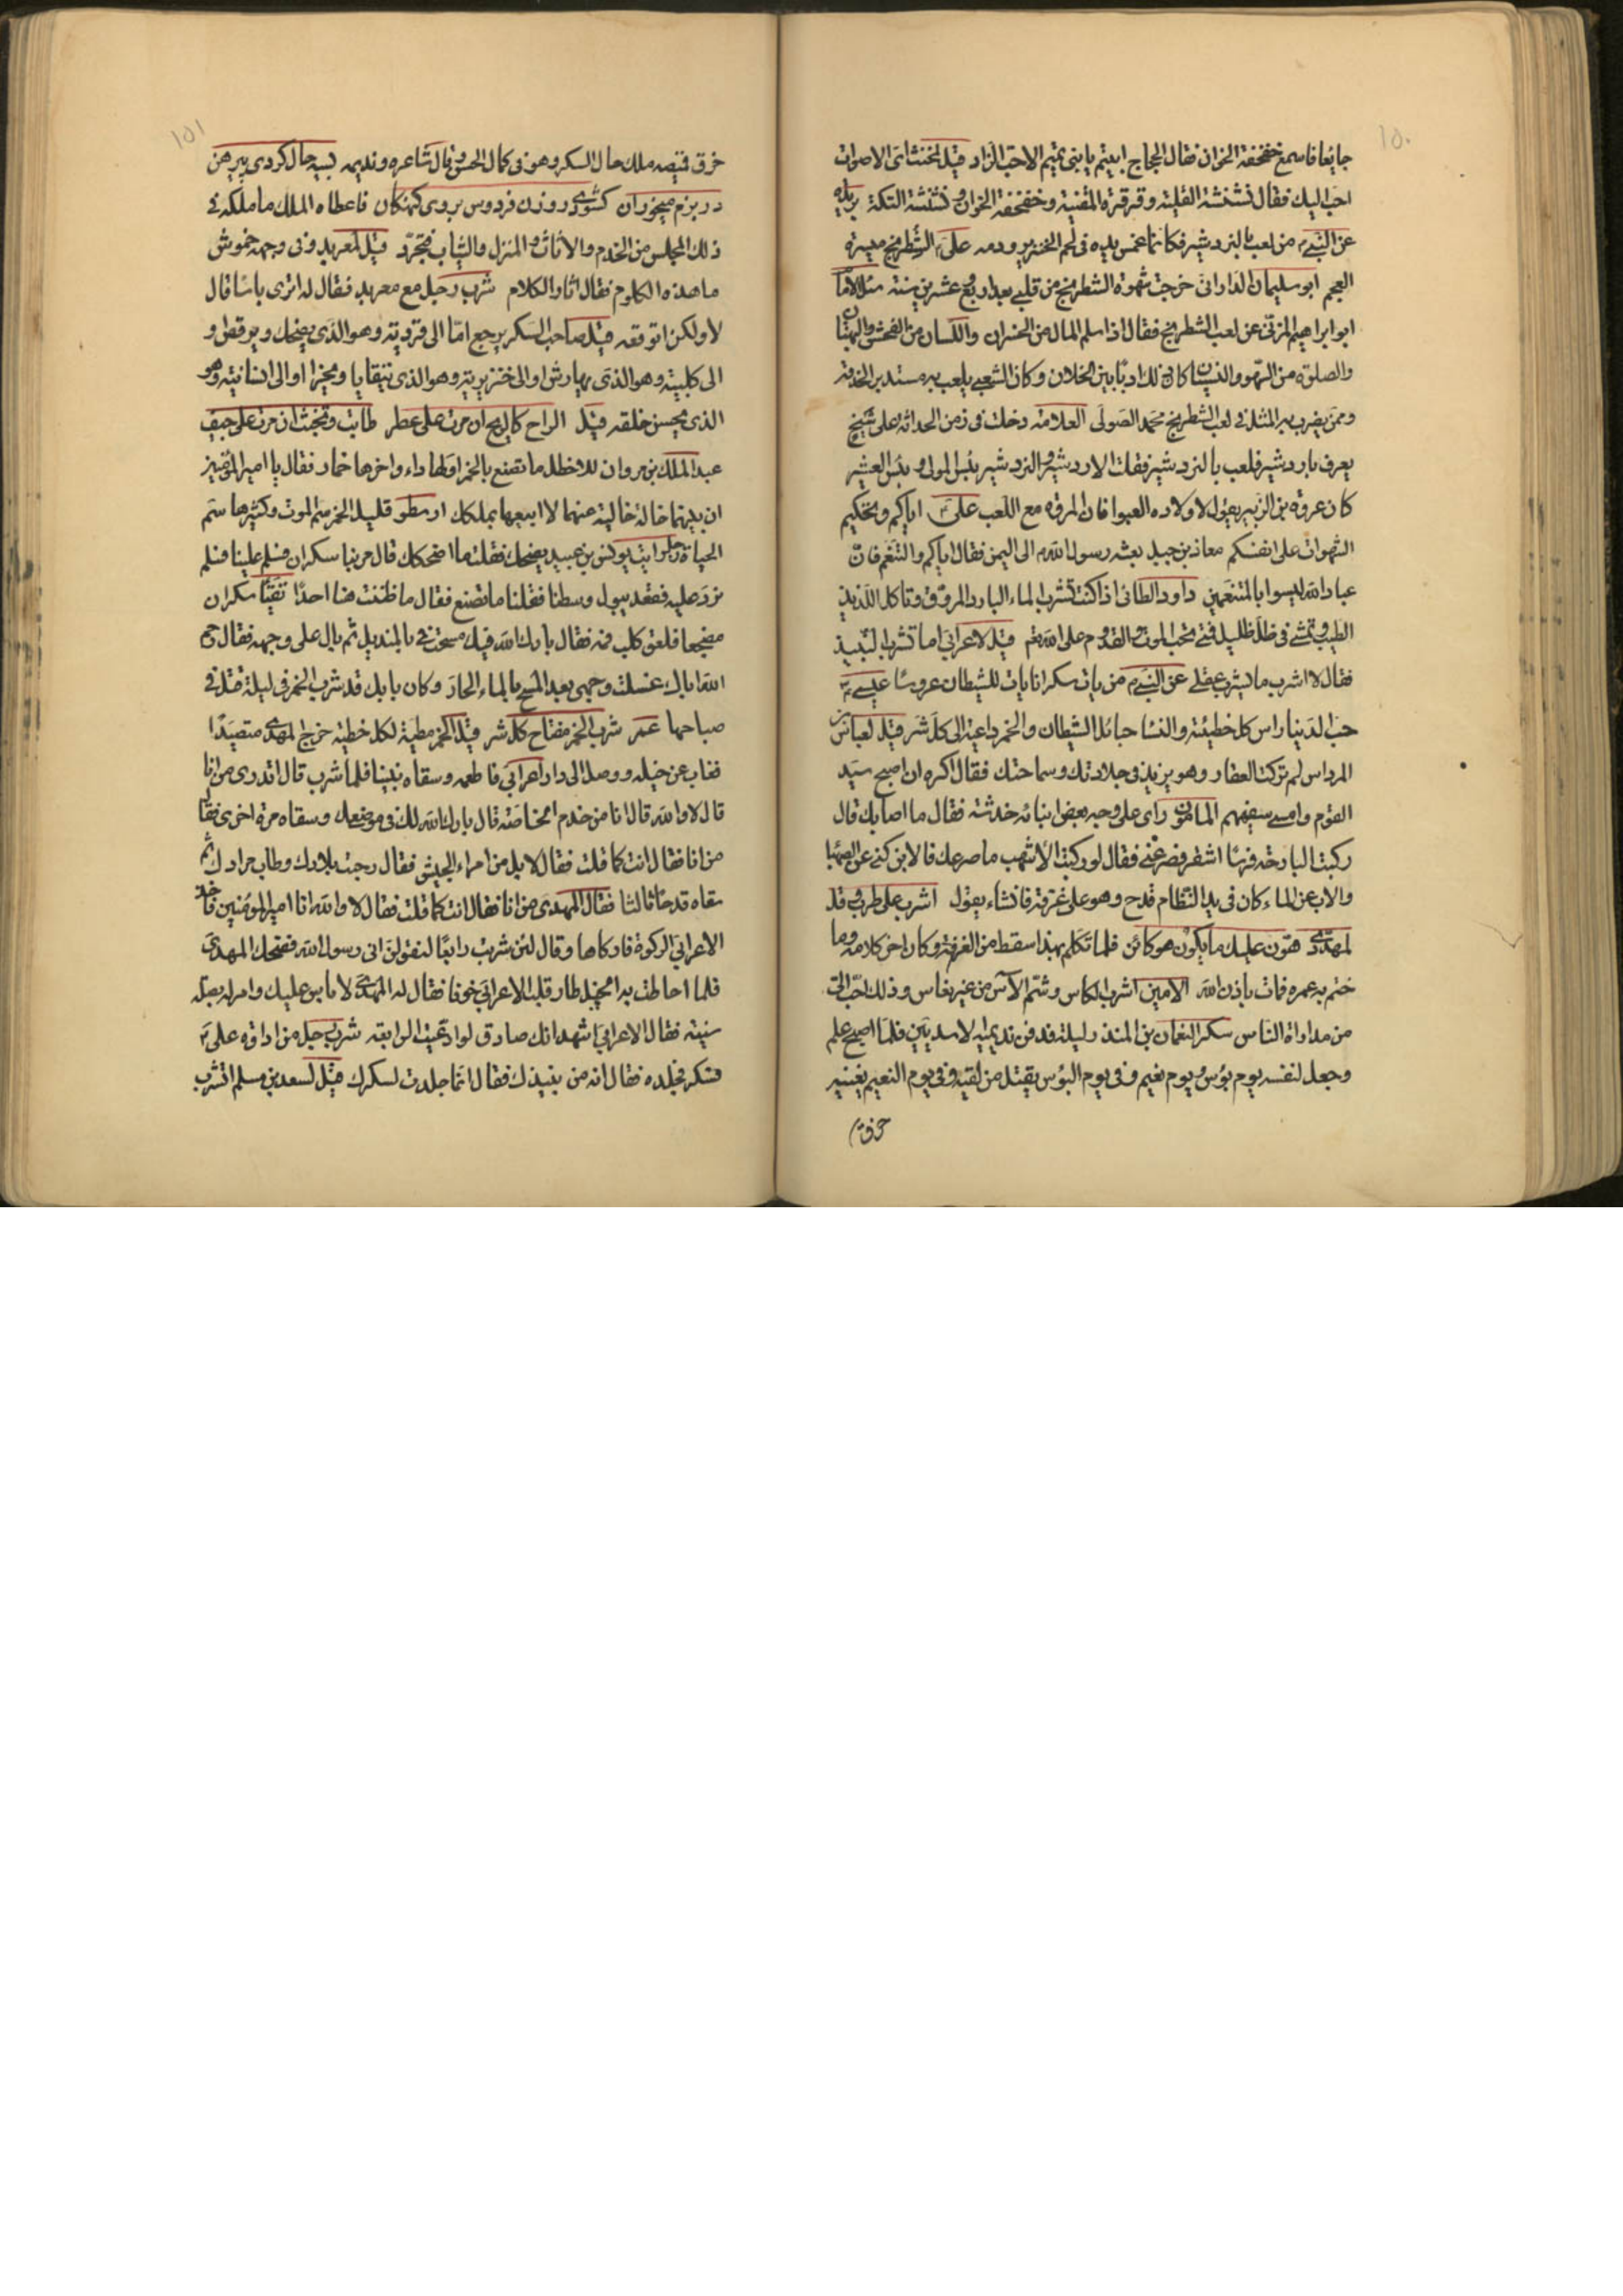 ١٥٠
جايعا فاسمع خفخفة الخوان فقال الحجاج ابيتم يا بنى تميم الا حب الزاد قيل لمخنث اى الاصوات
احب اليك فقال نشنشة القلية وقرقرة القنينة وخفخفة الخوان وفشفشة التكة بريدة
عن النبى م من لعب بالنردشير فكانما غمس يده فى لحم الخنزير ودمه على الشطرنج ميسرة
العجم ابو سليمان الدارانى خرجت شهوة الشطرنج من قلبى بعد اربع عشرين سنة سئل الامام
ابو ابراهيم المزنى عن لعب الشطرنج فقال اذا سلم المال من الخسران واللسان من الفحش والبهتان
والصلوة من السهو والنسيان كان ذلك ادبا بين الخلان وكان الشعبى يلعب به مستدبر الخدمة
وممن يضرب به المثل فى لعب الشطرنج محمد الصولى العلامة دخلت فى زمن الحداثة على شيخ
يعرف باردشير فلعب بالنردشير فقلت الاردشير والنردشير بئس المولى وبئس العشير
كان عروة بن الزبير يقول لاولاده العبوا فان المروة مع اللعب على اياكم وتحكيم
الشهوات على انفسكم معاذ بن جبل بعثه رسول الله م الى اليمن فقال اياكم والتنعم فان
عباد الله ليسوا بالمتنعمين داود الطائى اذا كنت تشرب الماء البارد المروق وتاكل اللذيذ
الطيب وتمشى فى ظل ظليل فمتى تحب الموت والقدوم على الله تع قيل لاعرابى اما تشرب النبيذ
فقال لا اشرب ما يشرب عقلى عن النبى م من بات سكرانا بات للشيطان عروسا عيسى م
حب الدنيا راس كل خطيئة والنسا حبائل الشيطان والخمر داعية الى كل شر قيل لعباس بن
المرداس لم تركت العقار وهو يزيد فى جلادتك وسماحتك فقال اكره ان اصبح سيد
القوم وامسى سفيههم المامون راى على وجه بعض ابنائه خدشة فقال ما اصابك قال
ركبت البارحة فرسا اشقر فصرعنى فقال لو ركبت الاشهب ما صرعك فالابن كنى عن الصهبا
والاب عن الماء كان فى يد النظام قدح وهو على غرفة فانشاء يقول اشرب على طرب وقل
لمهدد هون عليك ما يكون هو كائن فلما تكلم بهذا سقط من الغرفة وكان اخر كلامه وما
ختم به عمره فمات باذن الله الامين اشرب الكاس وشم الآس من غير نعاس وذلك احب الى
من مداواة الناس سكر النعمان بن المنذر ليلة فدفن نديميه الاسديين فلما اصبح علم
وجعل لنفسه يوم بؤس ويوم نعيم وفى يوم البؤس يقتل من لقيه وفى يوم النعيم يغنيه
خرق
١٥١
خرق قميصه ملك حال السكر وهو فى كمال الحسن وقال شاعره ونديمه بسيه جال كردى پيرهن
در بزم ميخوران كشودى روزن فردوس بر روى گنهكاران فاعطاه الملك ما ملكه فى
ذلك المجلس من الخدم والاثاث والمنزل والثياب فتجرد قيل لمعربد وفى وجهه خموش
ما هذه الكلوم فقال اثار الكلام شرب رجل مع معربد فقال له اترى باسا قال
لا ولكن اتوقعه قيل صاحب السكر يرجع اما الى قرديته وهو الذى يضحك ويرقص او
الى كلبيته وهو الذى يهارش او الى خنزيريته وهو الذى يتقايا ويخرا او الى انسانيته وهو
الذى يحسن خلقه قيل الراح كالريح ان مرت على عطر طابت وتخبث ان مرت على جيف
عبد الملك بن مروان للاخطل ما تصنع بالخمر اولها داء واخرها خمار فقال يا امير المؤمنين
ان بينهما حالة خالية عنهما لا ابيعها بملكك ارسطو قليل الخمر سم الموت وكثيرها سم
الحياة رجل رايت يونس بن عبيد يضحك فقلت ما اضحكك قال مر بنا سكران فسلم علينا فلم
نرد عليه فقعد يبول وسطنا فقلنا ما تصنع فقال ما ظننت هنا احدا تقيا سكران
مضجعا فلعق كلب فمه فقال بارك الله فيك مسحت فمى بالمنديل ثم بال على وجهه فقال رحم
الله اباك غسلت وجهى بعد المسح بالماء الحار وكان بابك قد شرب الخمر فى ليلة قتل فى
صباحها عمر شرب الخمر مفتاح كل شر قيل الخمر مطية لكل خطية خرج المهدى متصيدا
فغاب عن خيله ووصل الى دار اعرابى فاطعمه وسقاه نبيذا فلما شرب قال اتدرى من انا
قال لا والله قال انا من خدم الخاصة قال بارك الله لك فى موضعك وسقاه مرة اخرى فقال
من انا فقال انت كما قلت فقال لا بل من امراء الجيش فقال رحبت بلادك وطاب مرادك ثم
سقاه قدحا ثالثا فقال المهدى من انا فقال انت كما قلت فقال لا والله انا امير المؤمنين فاخذ
الاعرابى الركوة فاوكاها وقال لئن شربت رابعا لتقولن انى رسول الله فضحك المهدى
فلما احاطت به الخيل طار قلب الاعرابى خوفا فقال له المهدى لا باس عليك وامر له بصلة
سنية فقال الاعرابى اشهد انك صادق لو ادعيت الرابعة شرب رجل من اداوة على م
فسكر فجلده فقال انه من نبيذك فقال انما جلدت لسكرك قيل لسعد بن مسلم اتشرب